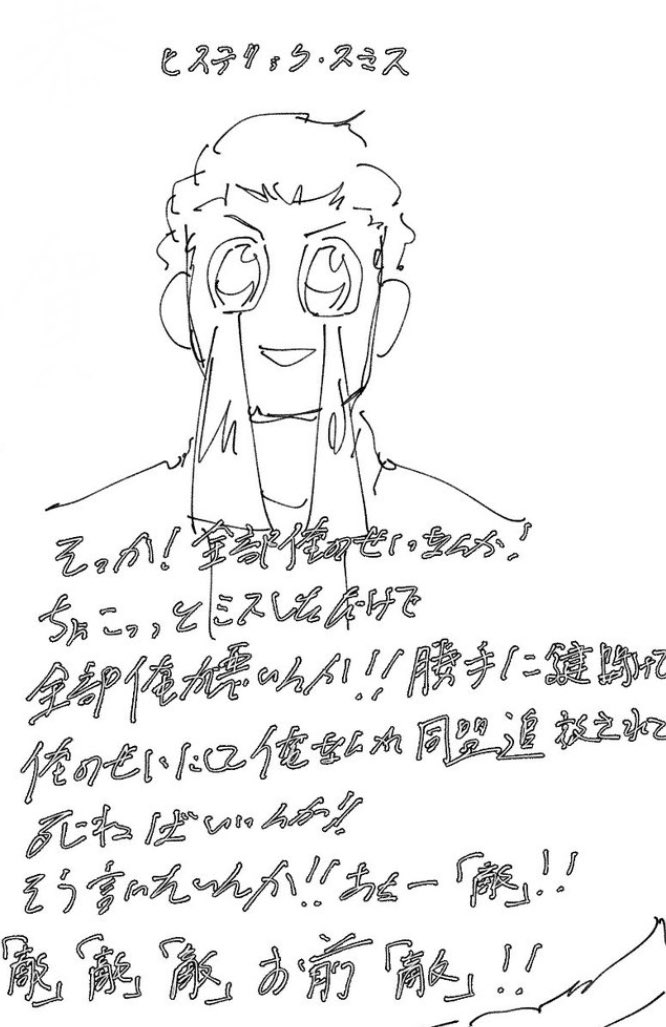 ヒステリック・スミス
そっか!全部俺のせいなんか!
ちょこっとミスしただけで
全部俺が悪いんか!!勝手に鍵開けて
俺のせいにして俺なんか同盟追放されて
死ねばいいんか!!
そう言いたいんか!!あぁー「敵」!!
「敵」「敵」「敵」お前「敵」!!